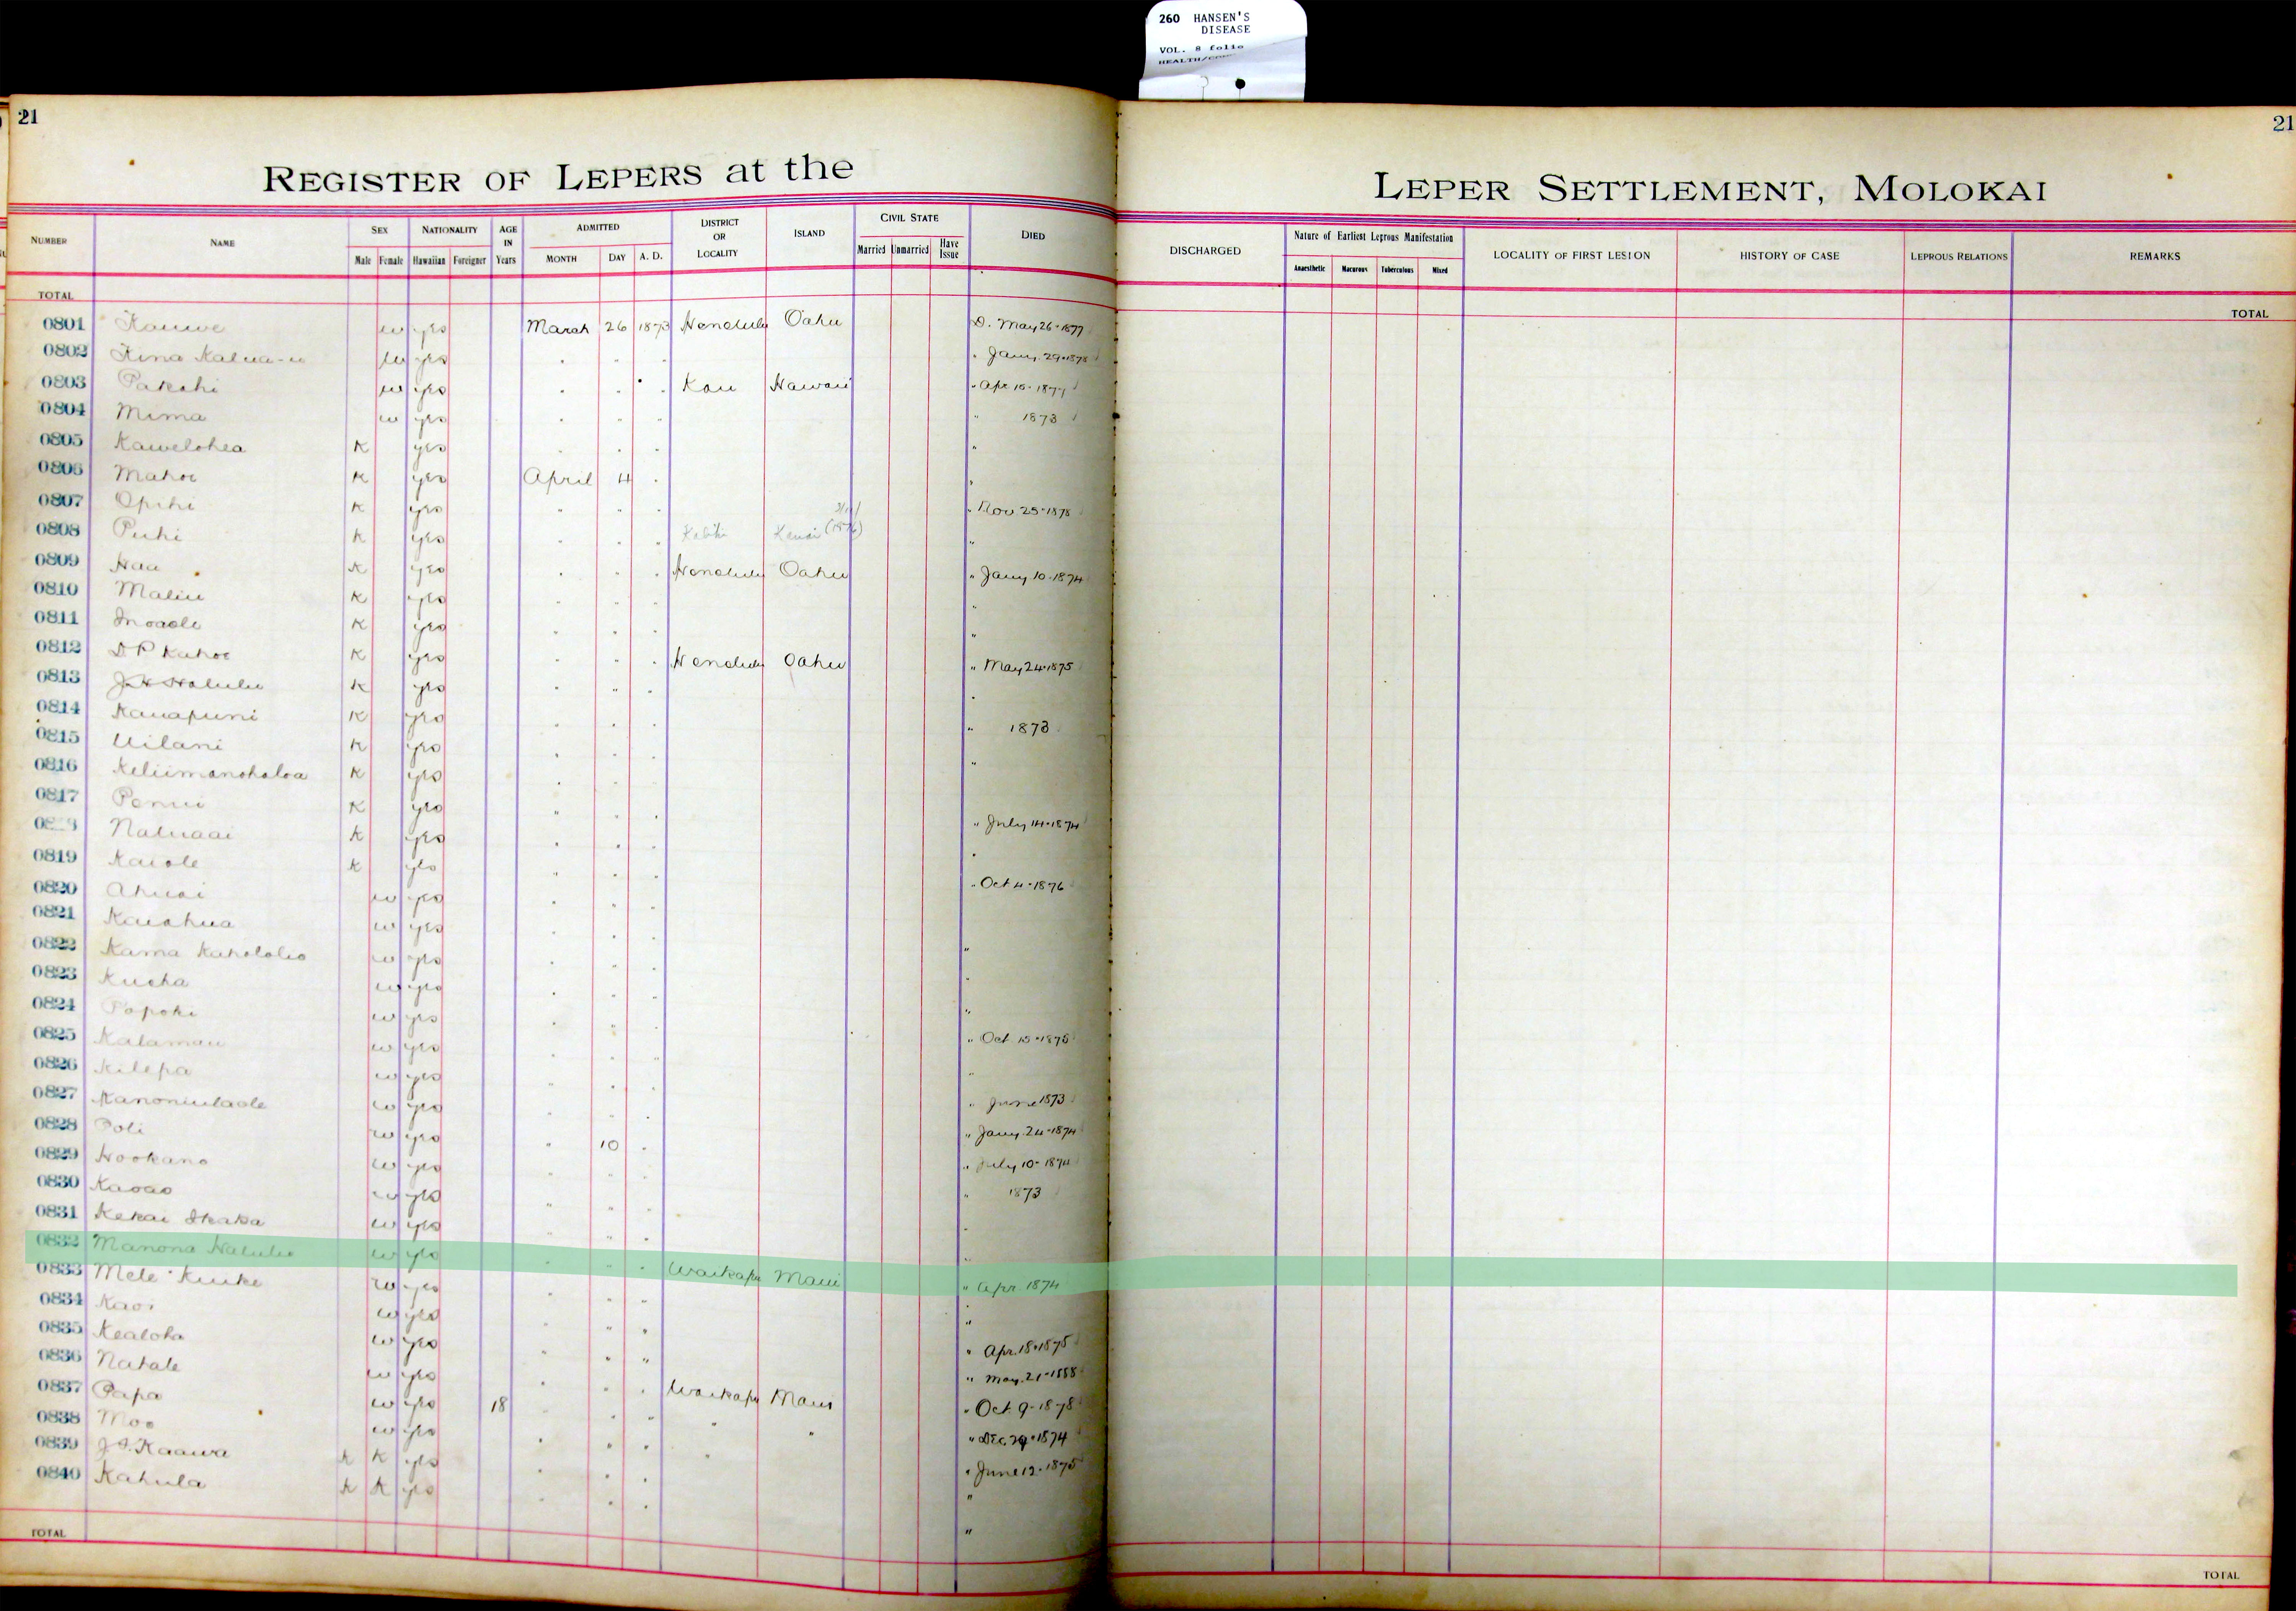 260 HANSEN'S
DISEASE
VOL. 8 folio
21
21
REGISTER OF LEPERS at the
LEPER SETTLEMENT, MOLOKAI
NUMBER NAME SEX Male Female NATIONALITY Hawaiian Foreigner AGE IN Years ADMITTED MONTH DAY A. D. DISTRICT OR LOCALITY ISLAND CIVIL STATE Married Unmarried Have Issue DIED
DISCHARGED Nature of Earliest Leprous Manifestation Anaesthetic Macurous Tuberculous Mixed LOCALITY OF FIRST LESION HISTORY OF CASE LEPROUS RELATIONS REMARKS
TOTAL
TOTAL
0801 Kauwe w yes March 26 1873 Honolulu Oahu D. May 26-1877
0802 Kina w yes " " " " Jany. 29-1878
0803 Pakahi w yes " " " Kau Hawaii " Apr 15-1877
0804 Mima w yes " " " " 1873
0805 Kawelohea K yes " " " "
0806 Mahoe K yes April 4 " "
0807 Opihi K yes " " " " Nov 25-1878
0808 Puhi K yes " " " Kauai (1876) "
0809 Hau K yes " " " Honolulu Oahu " Jany 10-1874
0810 Maliu K yes " " " "
0811 K yes " " " "
0812 Kahoe K yes " " " Honolulu Oahu " May 24-1875
0813 Halulu K yes " " " "
0814 Kauapuni K yes " " " " 1873
0815 Uilani K yes " " " "
0816 Keliimanohaloa K yes " " "
0817 Penui K yes " " " " July 14-1874
Naluaai K yes " " " "
0819 Kaiole K yes " " " " Oct 4-1876
0820 Ahuai w yes " " "
0821 Kauahua w yes " " " "
0822 Kama Kahololio w yes " " " "
0823 Kueha w yes " " " "
0824 Popoki w yes " " " " Oct. 15-1875
0825 Kalamau w yes " " " "
0826 Kilepa w yes " " " " June 1873
0827 Kanoniulaole w yes " " " " Jany. 24-1874
0828 Poli w yes " 10 " " July 10-1874
0829 Hookano w yes " " " " 1873
0830 Kaoao w yes " " " "
0831 Kekai Ikaka w yes " " " "
0832 Manona Halulu w yes " " " Waikapu Maui " Apr 1874
0833 Mele Kuike w yes " " " "
0834 Kaoi w yes " " " "
0835 Kealoha w yes " " " " Apr. 18-1875
0836 Nahale w yes " " " " May. 21-1888
0837 Papa w yes 18 " " " Waikapu Maui " Oct. 9-1878
0838 Moo w yes " " " " " " Dec. 29-1874
0839 Kaawa K K yes " " " " " June 12-1875
0840 Kahula K K yes " " " "
TOTAL
TOTAL